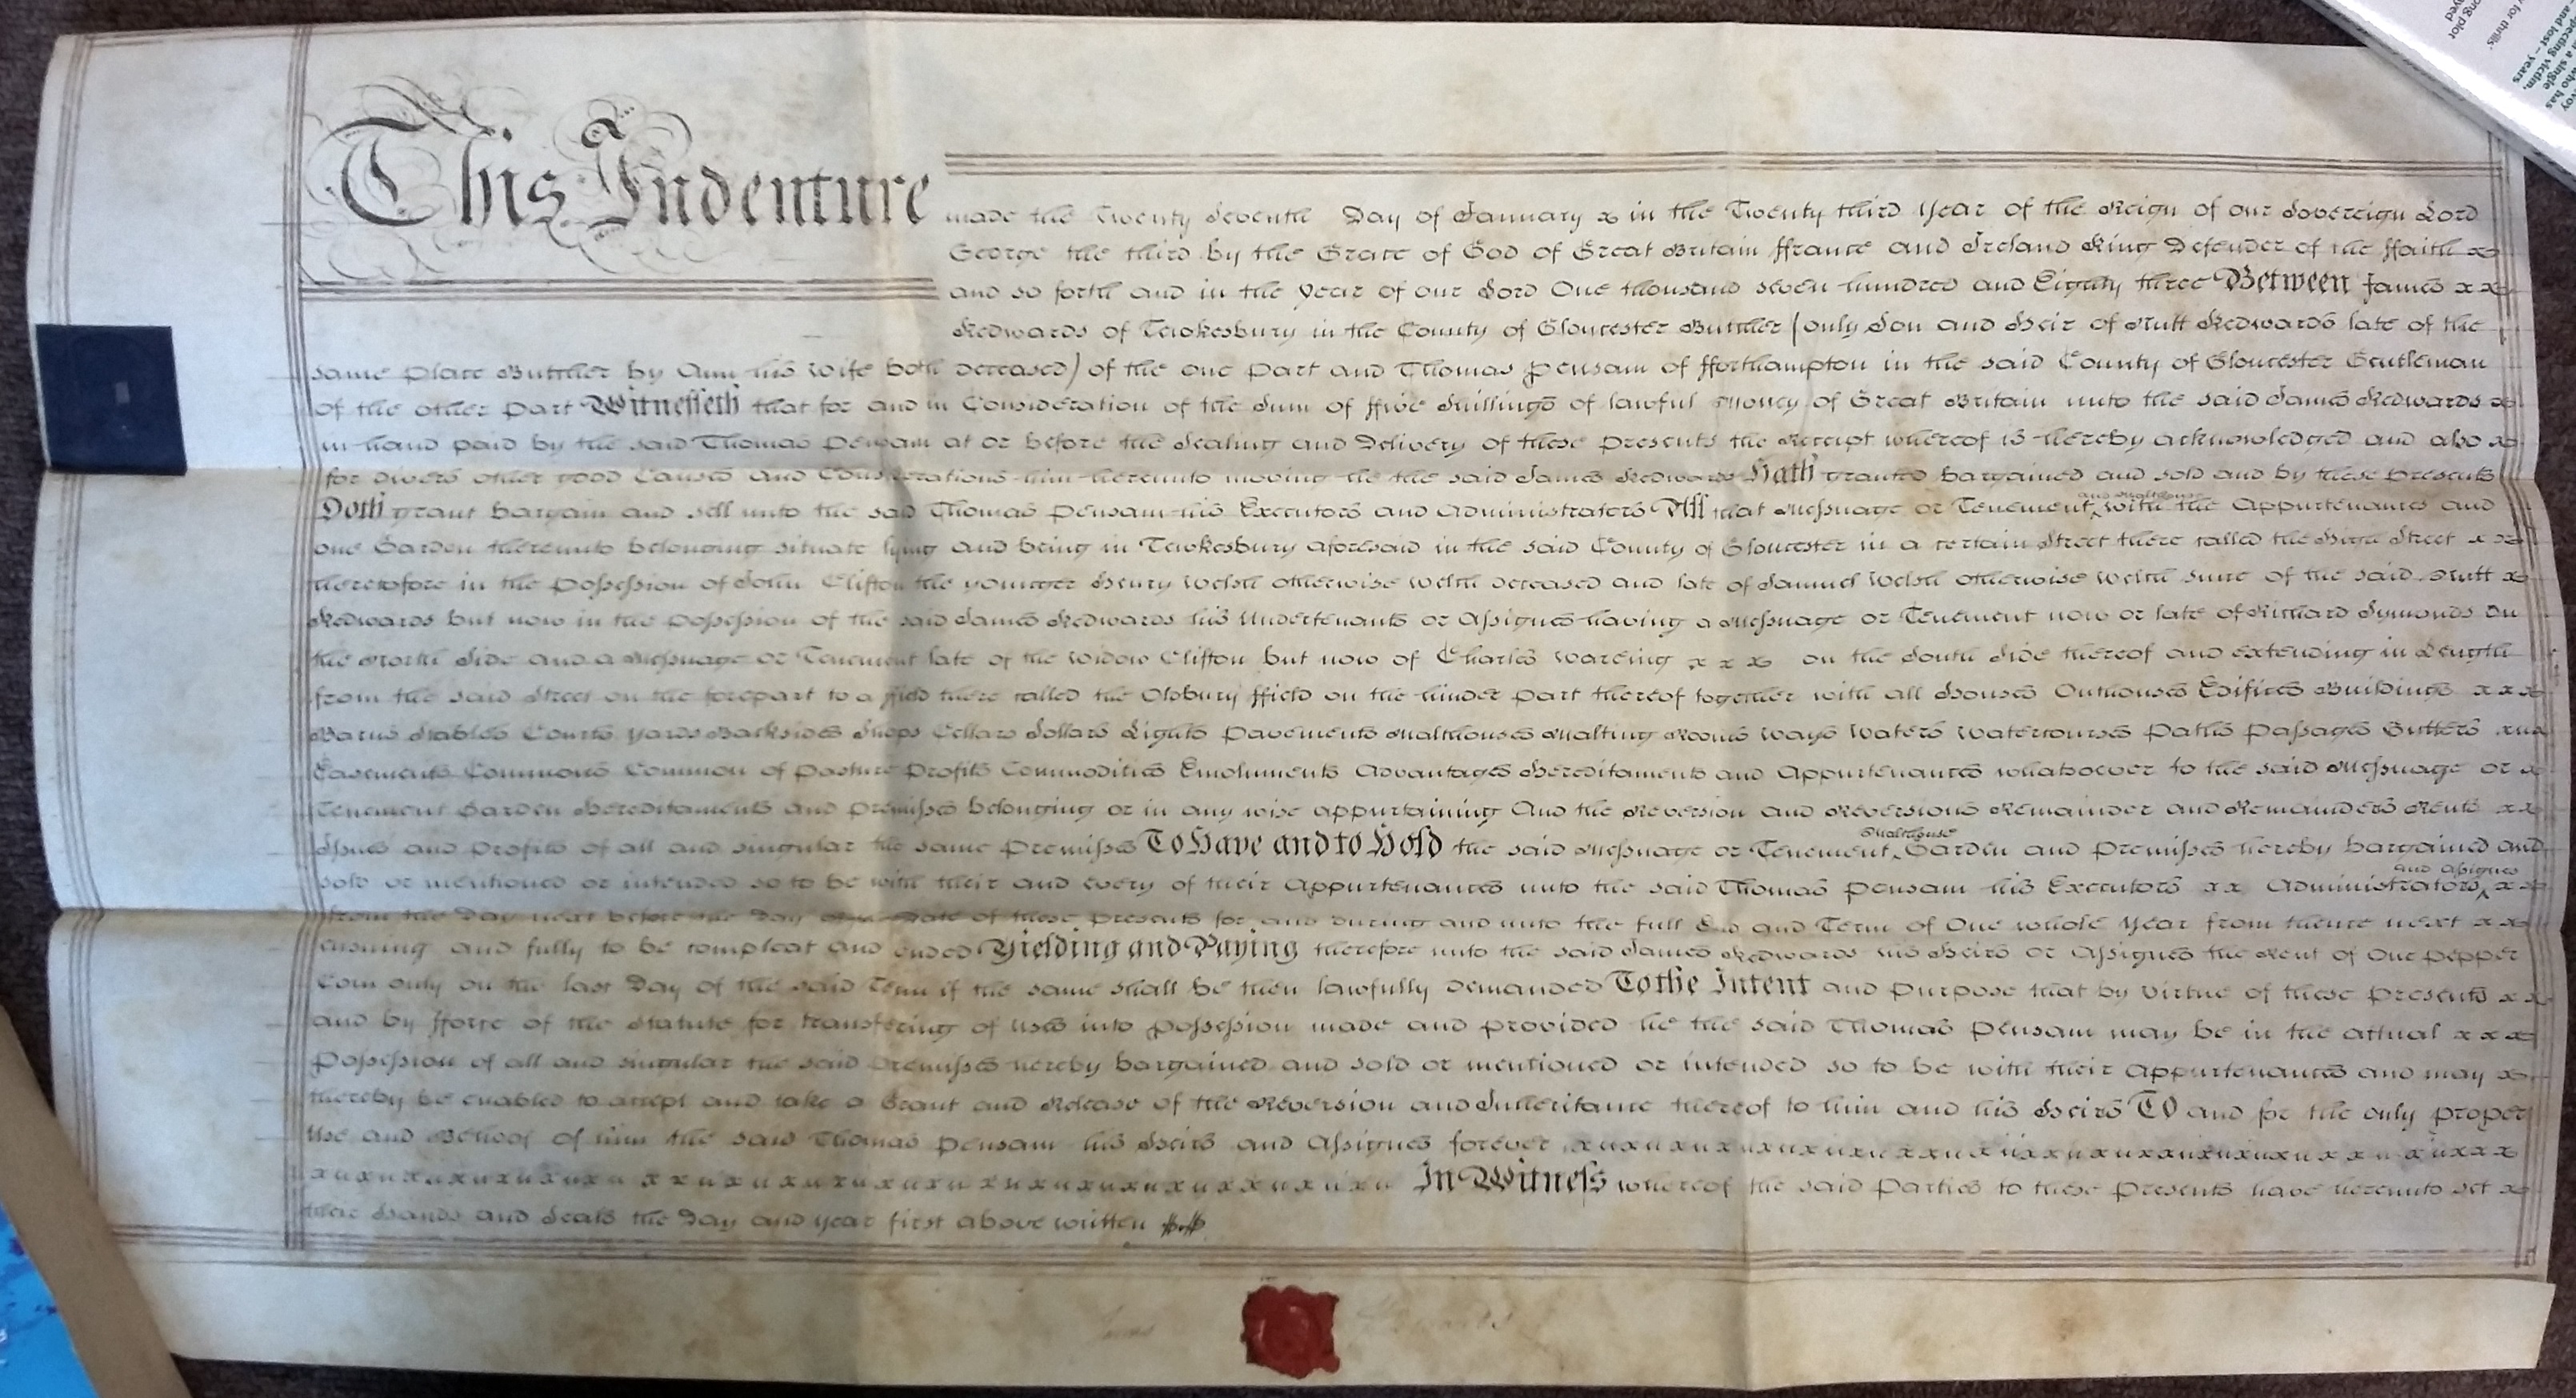 This Indenture made the Twenty Seventh Day of January x in the Twenty third Year of the Reign of our Sovereign Lord
George the third by the Grace of God of Great Britain ffrance and Ireland King Defender of the ffaith x
and so forth and in the Year of our Lord One thousand seven hundred and Eighty three Between James x x
Kedwards of Tewkesbury in the County of Gloucester Buttcher (only Son and Heir of Nutt Kedwards late of the
same place Buttcher by Ann his Wife both deceased) of the one Part and Thomas Pensam of fforthampton in the said County of Gloucester Gentleman
of the other Part Witnesseth that for and in Consideration of the Sum of ffive Shillings of lawful Money of Great Britain unto the said James Kedwards x
in hand paid by the said Thomas Pensam at or before the Sealing and Delivery of these Presents the Receipt whereof is hereby acknowledged and also x
for divers other good Causes and Considerations him hereunto moving he the said James Kedwards Hath granted bargained and sold and by these Presents
Doth grant bargain and sell unto the said Thomas Pensam his Executors and Administrators All that Messuage or Tenement and Malthouse with the Appurtenances and
one Garden thereunto belonging situate lying and being in Tewkesbury aforesaid in the said County of Gloucester in a certain Street there called the High Street x x
theretofore in the Possession of John Clifton the younger Henry Welsh otherwise Welch deceased and late of Samuel Welsh otherwise Welch since of the said Nutt x
Kedwards but now in the Possession of the said James Kedwards his Undertenants or Assignes having a Messuage or Tenement now or late of Richard Symonds on
the North Side and a Messuage or Tenement late of the Widow Clifton but now of Charles Wareing x x x on the South Side thereof and extending in Length
from the said Street on the forepart to a ffield there called the Oldbury ffield on the hinder part thereof together with all Houses Outhouses Edifices Buildings x x x
Barns Stables Courts Yards Backsides Shops Cellars Sollars Lights Pavements Malthouses Malting Rooms Ways Waters Watercourses Paths Passages Gutters
Easements Commons Common of Pasture Profits Commodities Emoluments Advantages Hereditaments and Appurtenances whatsoever to the said Messuage or x
Tenement Garden Hereditaments and Premisses belonging or in any wise appurtaining And the Reversion and Reversions Remainder and Remainders Rents x x
Issues and Profits of all and singular the same Premisses To Have and to Hold the said Messuage or Tenement Malthouse Garden and Premisses hereby bargained and
sold or mentioned or intended so to be with their and every of their Appurtenances unto the said Thomas Pensam his Executors x x Administrators and Assignes x x
from the Day next before the Day of the Date of these Presents for and during and unto the full End and Term of One whole Year from thence next x x
ensuing and fully to be compleat and ended Yielding and Paying therefore unto the said James Kedwards his Heirs or Assignes the Rent of One Pepper
Corn only on the last Day of the said Term if the same shall be then lawfully demanded To the Intent and Purpose that by Virtue of these Presents x x
and by fforce of the Statute for transfering of Uses into Possession made and provided he the said Thomas Pensam may be in the actual x x x
Possession of all and singular the said Premisses hereby bargained and sold or mentioned or intended so to be with their Appurtenances and may x
thereby be enabled to accept and take a Grant and Release of the Reversion and Inheritance thereof to him and his Heirs TO and for the only proper
Use and Behoof of him the said Thomas Pensam his Heirs and Assignes forever
In Witness whereof the said Parties to these Presents have hereunto set x
their Hands and Seals the Day and Year first above written
James Kedwards